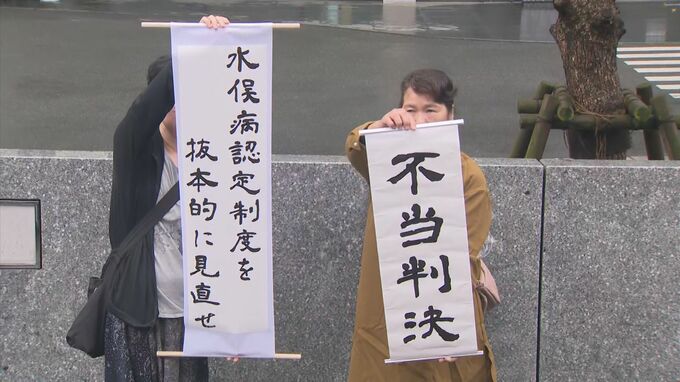 水俣病認定制度を
抜本的に見直せ
不当判決